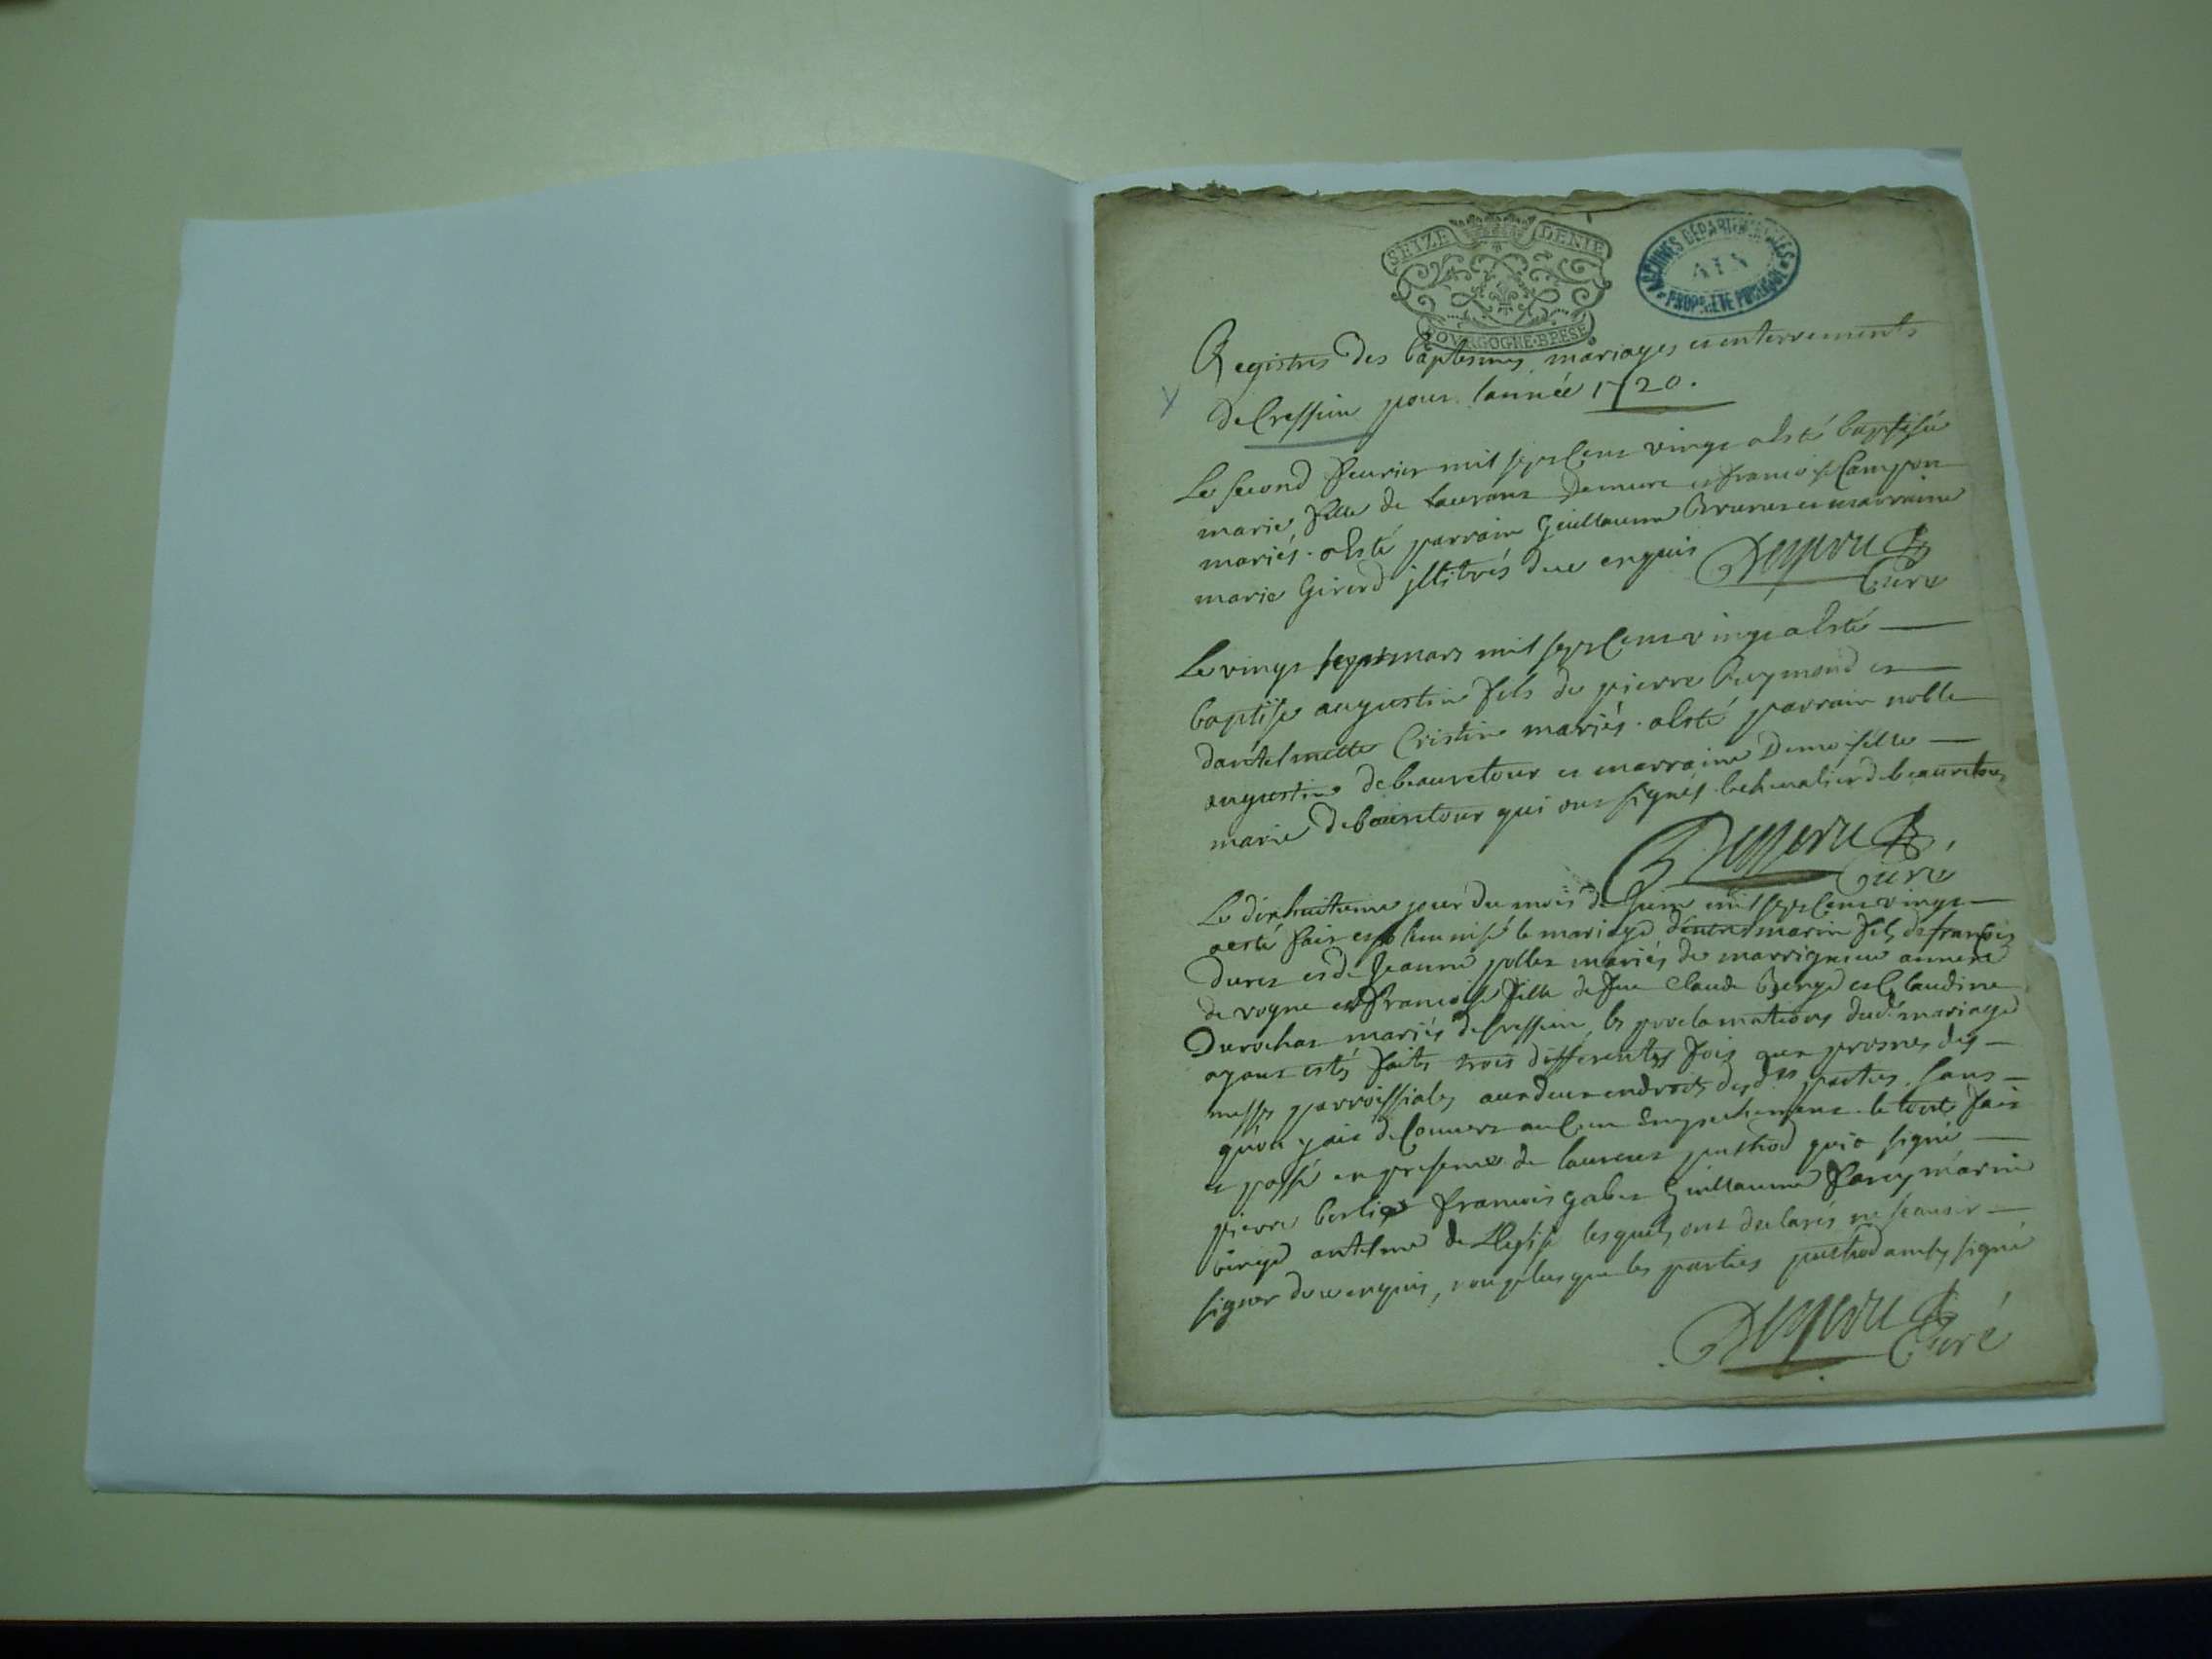 SEIZE DENIE
BOVRGOGNE·BRESE
ARCHIVES DEPARTEMENTALES
AIN
PROPRIETE PUBLIQUE
Registres des baptesmes mariages et enterrements
de Cressieu pour lannée 1720.
Le second feurier mil sept cent vingt a esté baptisée
marie fille de Laurans Demure et francoise Campon
mariés. a esté parrain Guillaume Brunet et marraine
marie Girerd illitrés deue enquis
Curé
Le vingt sept mars mil sept cent vingt a esté
baptisé augustin fils de pierre Reymond et
dantelmette Cristin mariés. a esté parrain noble
augustin de beauretour et marraine Demoiselle
marie de beauretour qui ont signés. le chevalier de beauretour
Curé
Le dixhuitieme jour du mois de Juin mil sept cent vingt
a esté fait et solemnisé le mariage dentre marin fils de francois
Duret et de Jeanne pollet mariés de marrignieu annexe
de vogne et francoise fille de feu Claude Berge et Claudine
Durochat mariés de Cressieu, les proclamations dud. mariage
ayant estés faites trois differentes fois aux prosnes des
messes parroissiales aux deux endroits desd.es parties sans
quon y ait decouvert aucun empechement. le tout fait
et passé en presence de laurent puthod qui a signé
pierre berlio francois gabet Guillaume farcy marin
berge antelme de Leglise lesquels ont declarés ne scauoir
signer deue enquis, non plus que les parties puthod ainsy signé
Curé